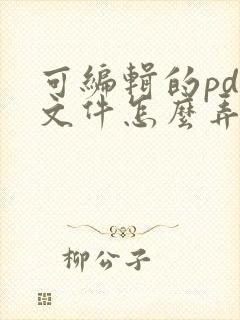 可编辑的pd
文件怎麼弄
柳公子